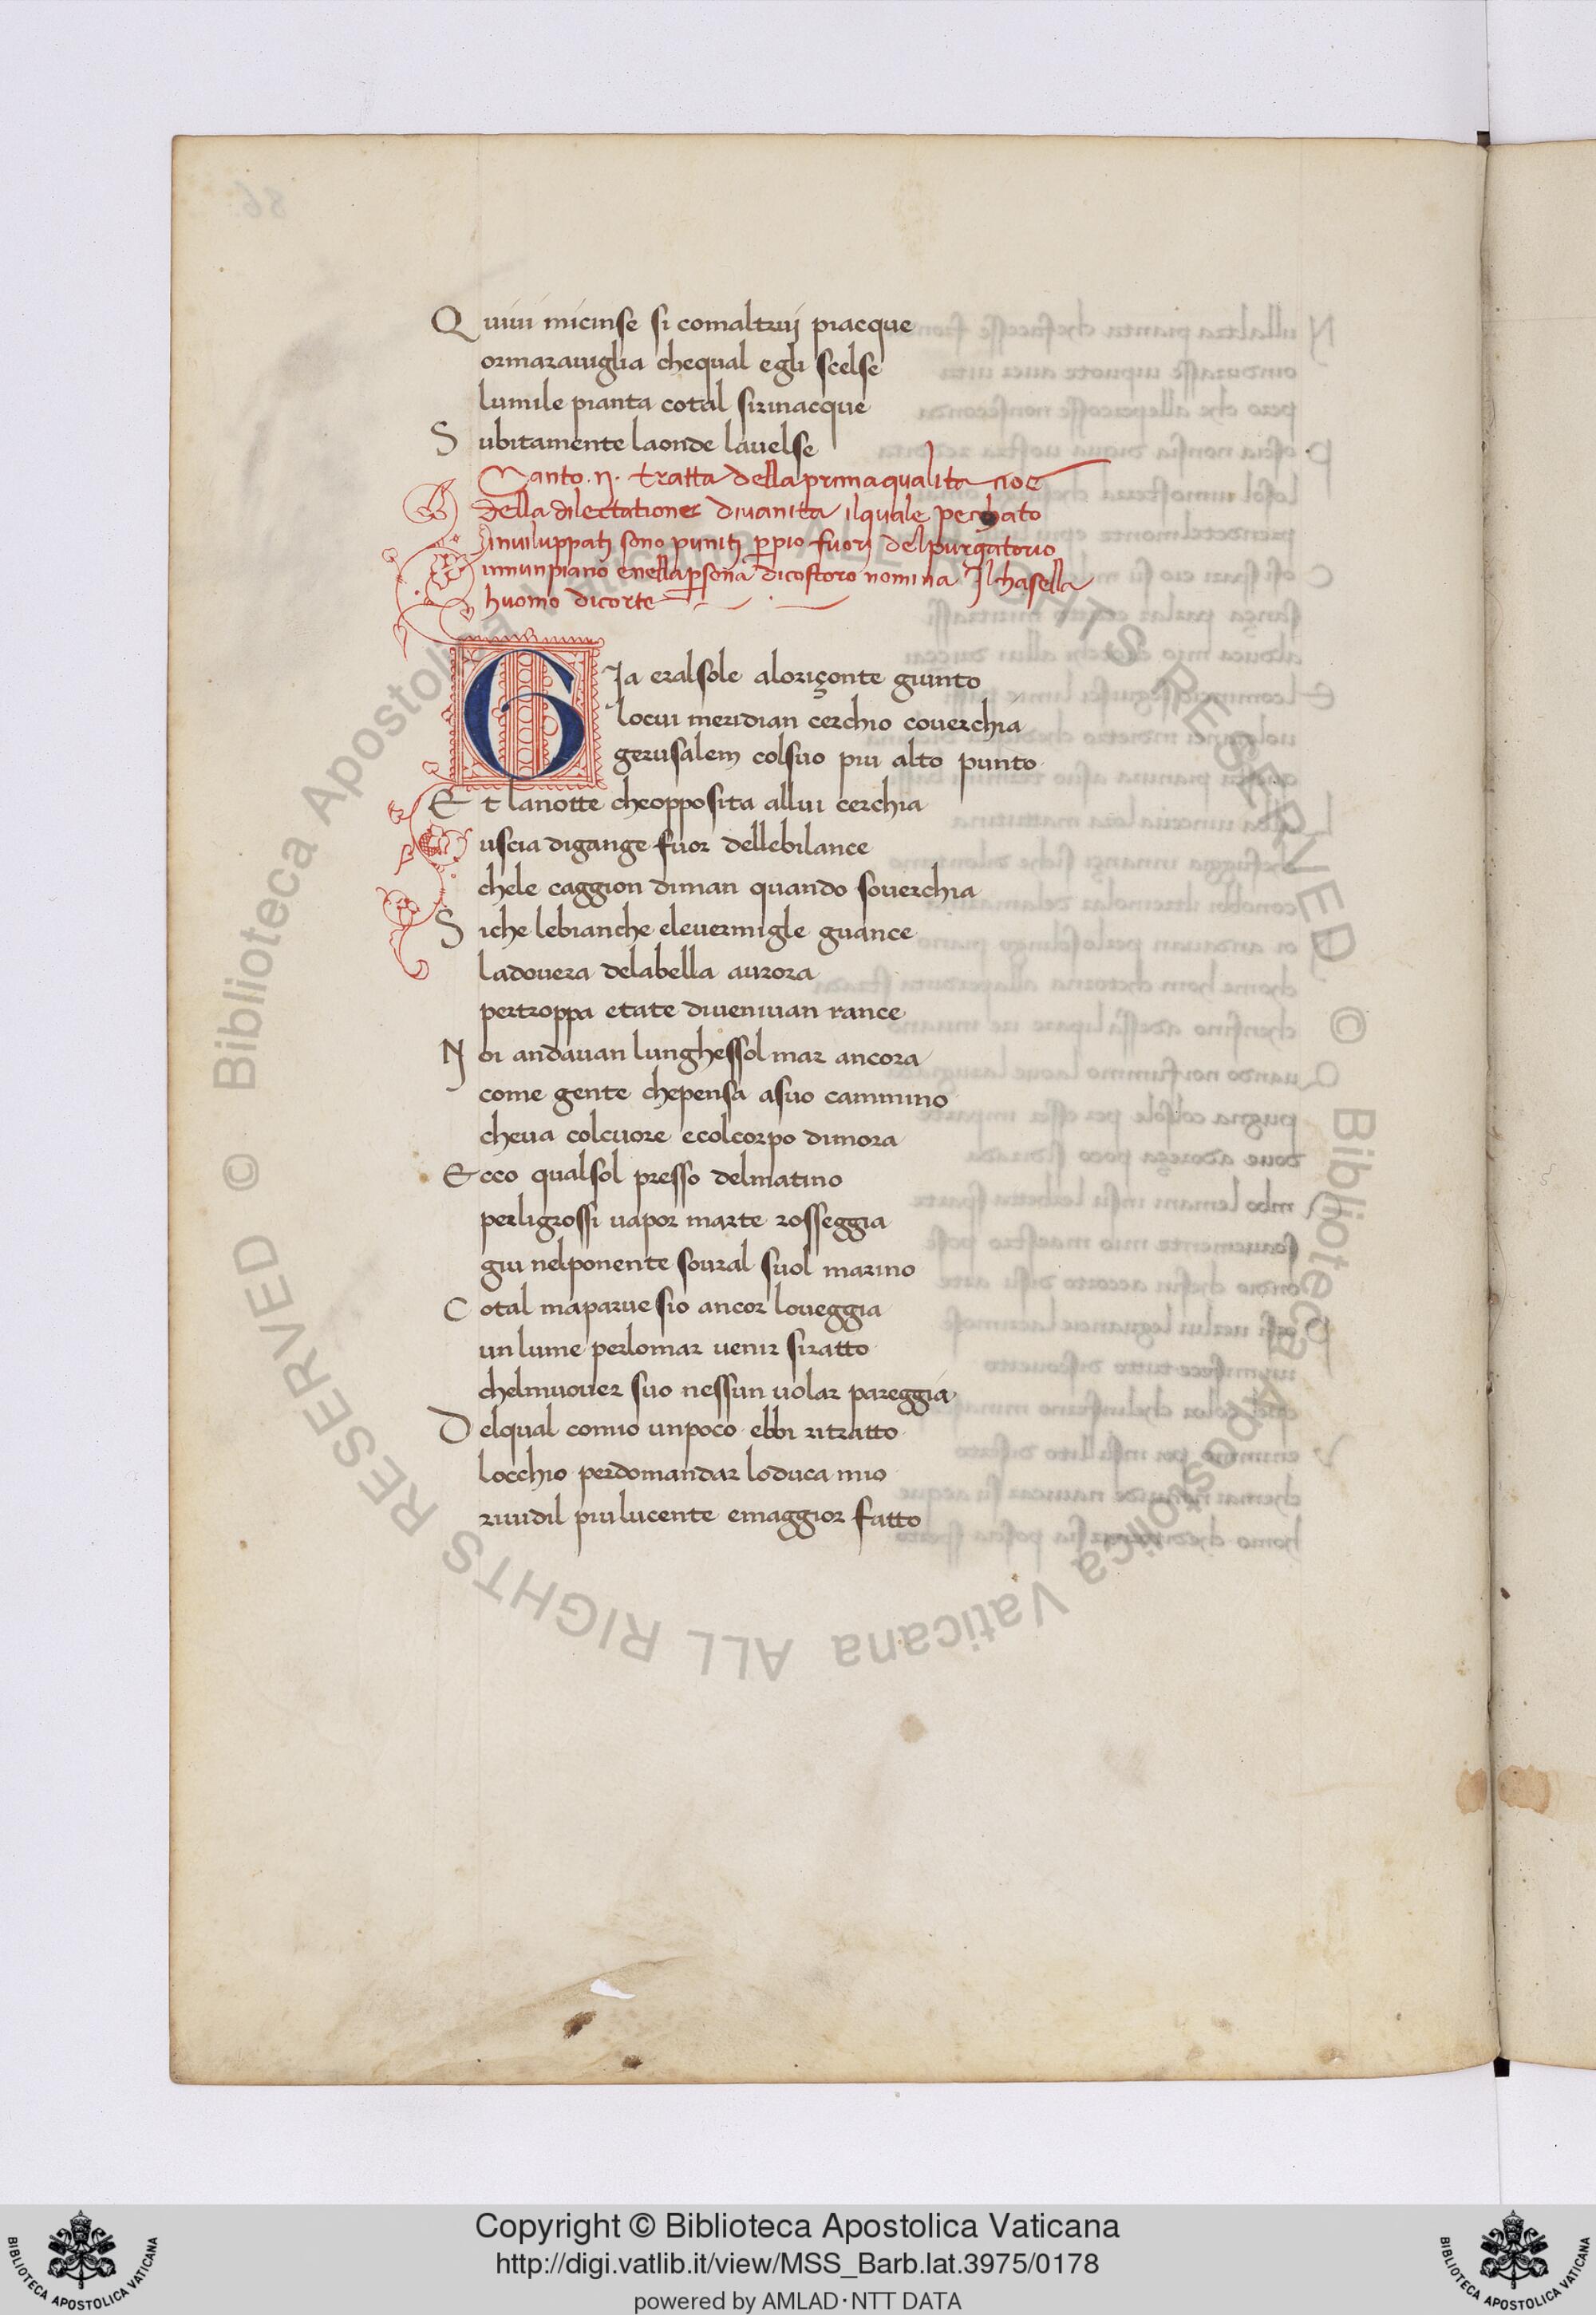 Quiui micinse si comaltruj piacque
ormarauiglia chequal egli scelse
lumile pianta cotal sirinacque
Subitamente laonde lauelse
Canto .ij. tratta della prima qualita cioe
della dilectationes diuanita ilquale pecchato
inviluppatj sono punitj ꝑpio fuorj delpurgatorio
innunpiano enellaꝑsona dicostoro nomina Il hasella
huomo dicorte
GIa eralsole aloriçonte giunto
locui meridian cerchio couerchia
gerusalem colsuo piu alto punto
Et lanotte cheopposita allui cerchia
uscia digange fuor dellebilance
chele caggion diman quando souerchia
Siche lebianche eleuermigle guance
ladouera delabella aurora
pertroppa etate diueniuan rance
Noi andauan lunghessol mar ancora
come gente chepensa asuo cammino
cheua colcuore ecolcorpo dimora
Ecco qualsol presso delmatino
perligrossi uapor marte rosseggia
giu nelponente soural suol marino
Cotal maparue sio ancor loueggia
un lume perlomar uenir siratto
chelmuouer suo nessun uolar pareggia
Delqual comio unpoco ebbi ritratto
locchio perdomandar loduca mio
riuidil piulucente emaggior fatto
© Biblioteca Apostolica Vaticana ALL RIGHTS RESERVED © Biblioteca Apostolica Vaticana ALL RIGHTS RESERVED
Copyright © Biblioteca Apostolica Vaticana
http://digi.vatlib.it/view/MSS_Barb.lat.3975/0178
powered by AMLAD·NTT DATA
BIBLIOTECA APOSTOLICA VATICANA
BIBLIOTECA APOSTOLICA VATICANA